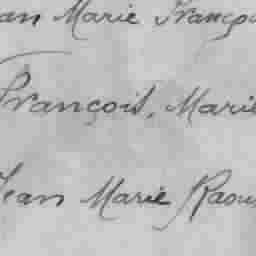 an Marie Franço
François, Marie
Jean Marie Raou